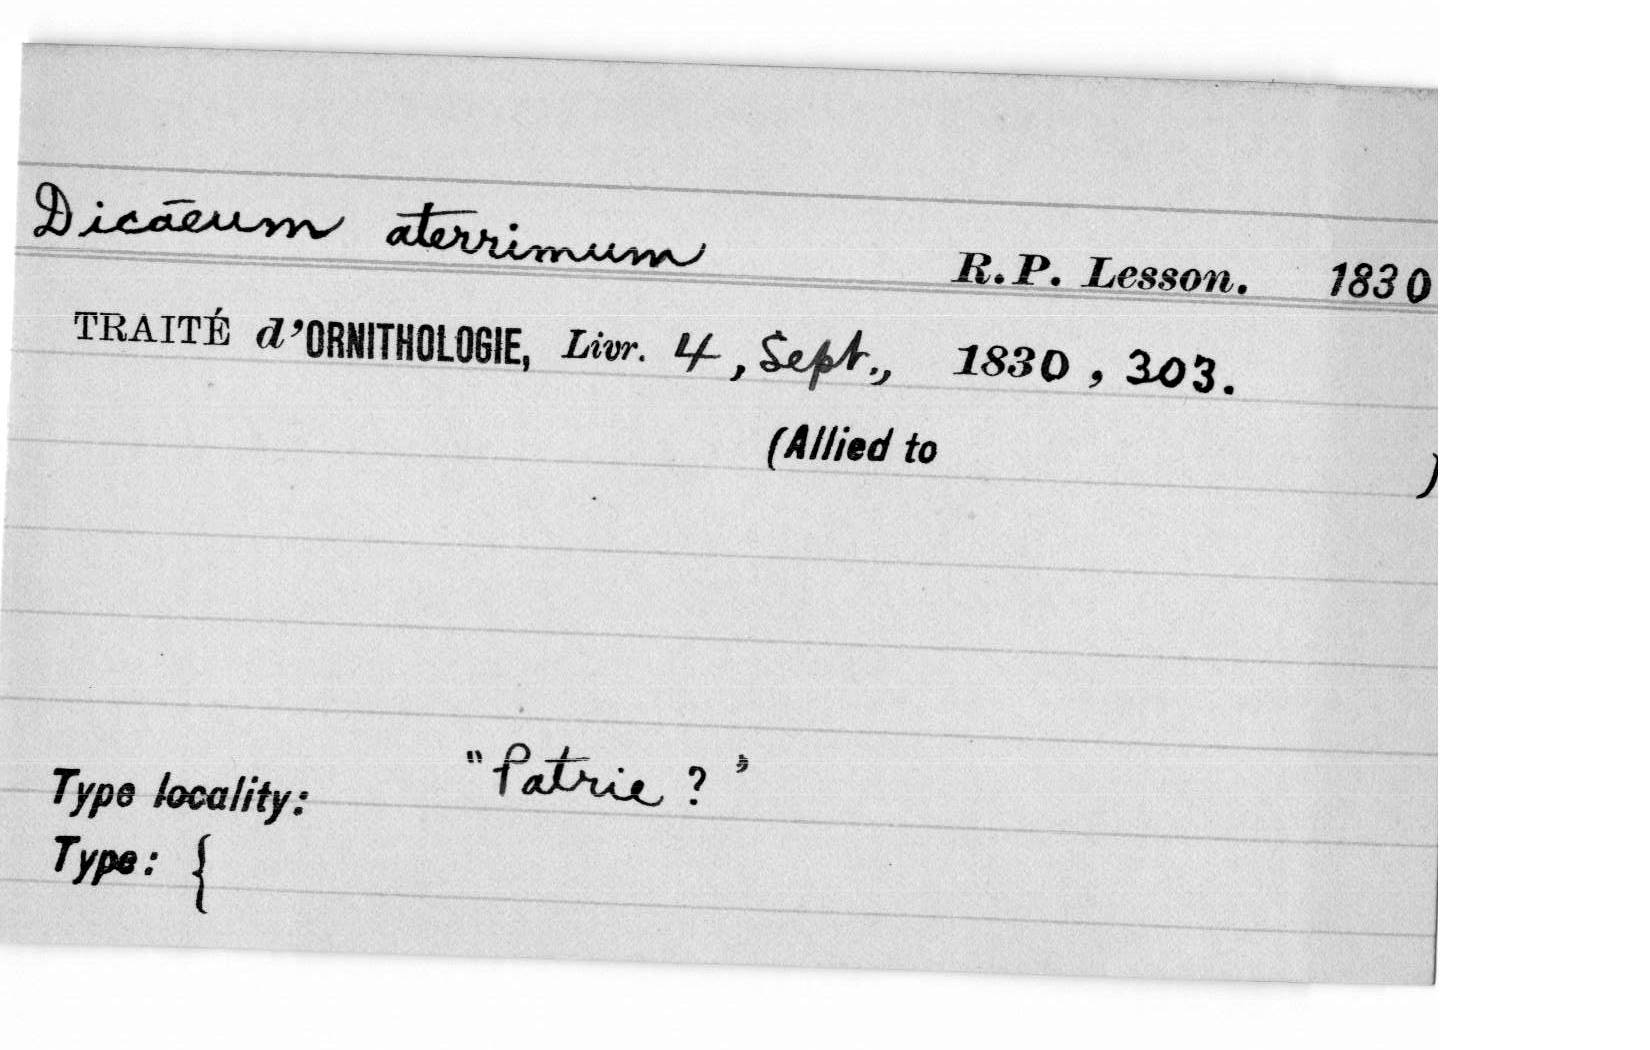 Dicāeum aterrimum R.P. Lesson. 1830
TRAITÉ d'ORNITHOLOGIE, Livr. 4, Sept., 1830, 303.
(Allied to )
Type locality: "Patrie ? "
Type: {